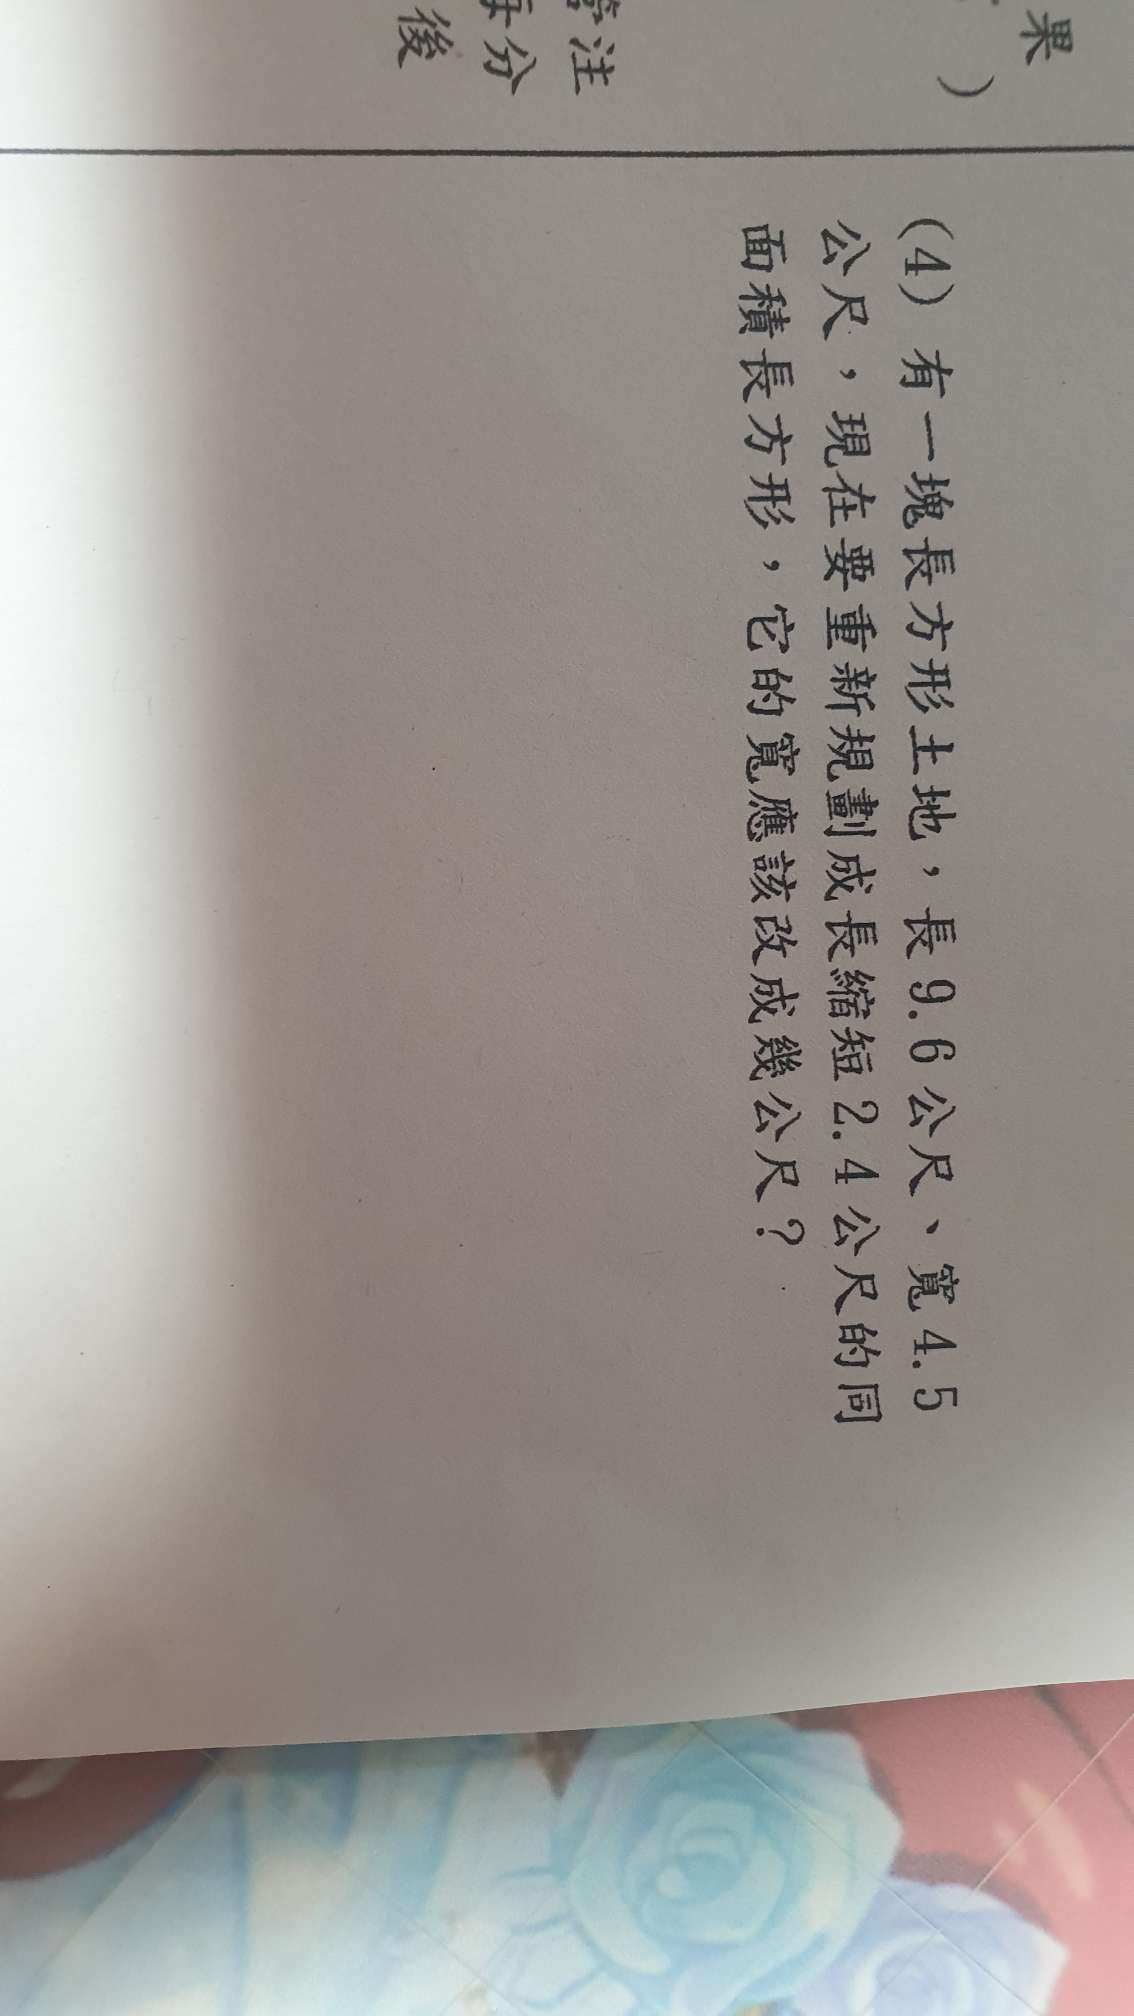 果
)
注
分
後
(4) 有一塊長方形土地，長9.6公尺、寬4.5
公尺，現在要重新規劃成長縮短2.4公尺的同
面積長方形，它的寬應該改成幾公尺？